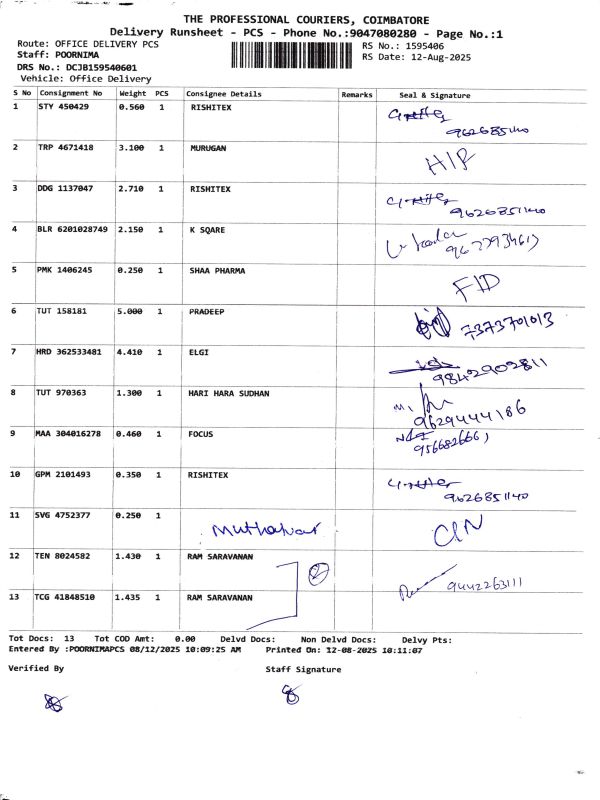 THE PROFESSIONAL COURIERS, COIMBATORE
Delivery Runsheet - PCS - Phone No.:9047080280 - Page No.:1
Route: OFFICE DELIVERY PCS
Staff: POORNIMA
DRS No.: DCJB159540601
Vehicle: Office Delivery
RS No.: 1595406
RS Date: 12-Aug-2025
S No Consignment No Weight PCS Consignee Details Remarks Seal & Signature
1 STY 450429 0.560 1 RISHITEX
9626851140
2 TRP 4671418 3.100 1 MURUGAN H/P
3 DDG 1137047 2.710 1 RISHITEX
9626851140
4 BLR 6201028749 2.150 1 K SQARE
9677934617
5 PMK 1406245 0.250 1 SHAA PHARMA F/D
6 TUT 158181 5.000 1 PRADEEP 7373701013
7 HRD 362533481 4.410 1 ELGI
9842902811
8 TUT 970363 1.300 1 HARI HARA SUDHAN
9629444186
9 MAA 304016278 0.460 1 FOCUS
10 GPM 2101493 0.350 1 RISHITEX
9626851140
11 SVG 4752377 0.250 1 C/N
12 TEN 8024582 1.430 1 RAM SARAVANAN
2 9442263111
13 TCG 41848510 1.435 1 RAM SARAVANAN
Tot Docs: 13 Tot COD Amt: 0.00 Delvd Docs: Non Delvd Docs: Delvy Pts:
Entered By :POORNIMAPCS 08/12/2025 10:09:25 AM Printed On: 12-08-2025 10:11:07
Verified By Staff Signature